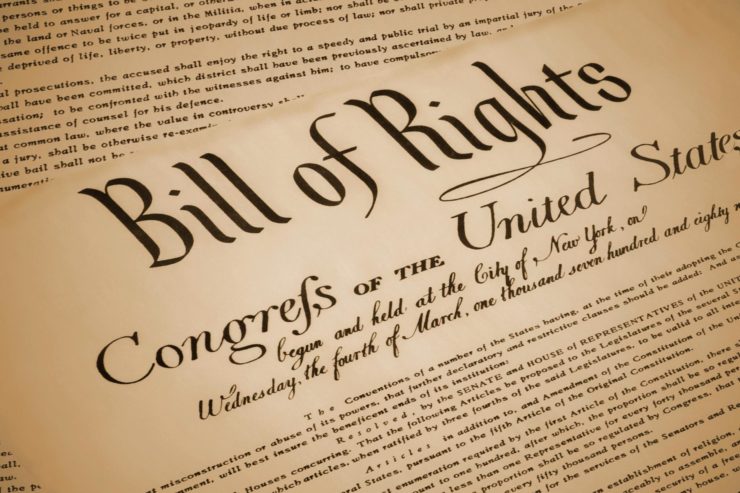 persons or things to be
be held to answer for a capital, or other
the land or Naval forces, or in the Militia, when in
same offence to be twice put in jeopardy of life or limb; nor shall be
be deprived of life, liberty, or property, without due process of law; nor shall private
prosecutions, the accused shall enjoy the right to a speedy and public trial by an impartial jury of the
shall have been committed, which district shall have been previously ascertained by law, and
to be confronted with the witnesses against him; to have compulsory
assistance of counsel for his defence.
at common law, where the value in controversy shall
a jury, shall be otherwise re-exami
ive bail shall not be
Bill of Rights
Congreſs OF THE United States
begun and held at the City of New York, on
Wednesday, the fourth of March, one thousand seven hundred and eighty n
The Conventions of a number of the States having, at the time of their adopting the C
misconstruction or abuse of its powers, that further declaratory and restrictive clauses should be added: And as
will best insure the beneficent ends of its institution:
Resolved, by the SENATE and HOUSE of REPRESENTATIVES of the UNITE
Houses concurring. That the following Articles be proposed to the Legislatures of the several States
which articles, when ratified by three fourths of the said Legislatures, to be valid to all inte
Articles in addition to, and Amendment of the Constitution of the Uni
States, pursuant to the fifth Article of the Original Constitution.
enumeration required by the first Article of the Constitution, there s
to one hundred, after which, the proportion shall be so regu
less than one Representative for every forty thousand pers
shall be so regulated by Congress, that
every fifty thousand persons.
for the services of the Senators and Re
establishment of religion,